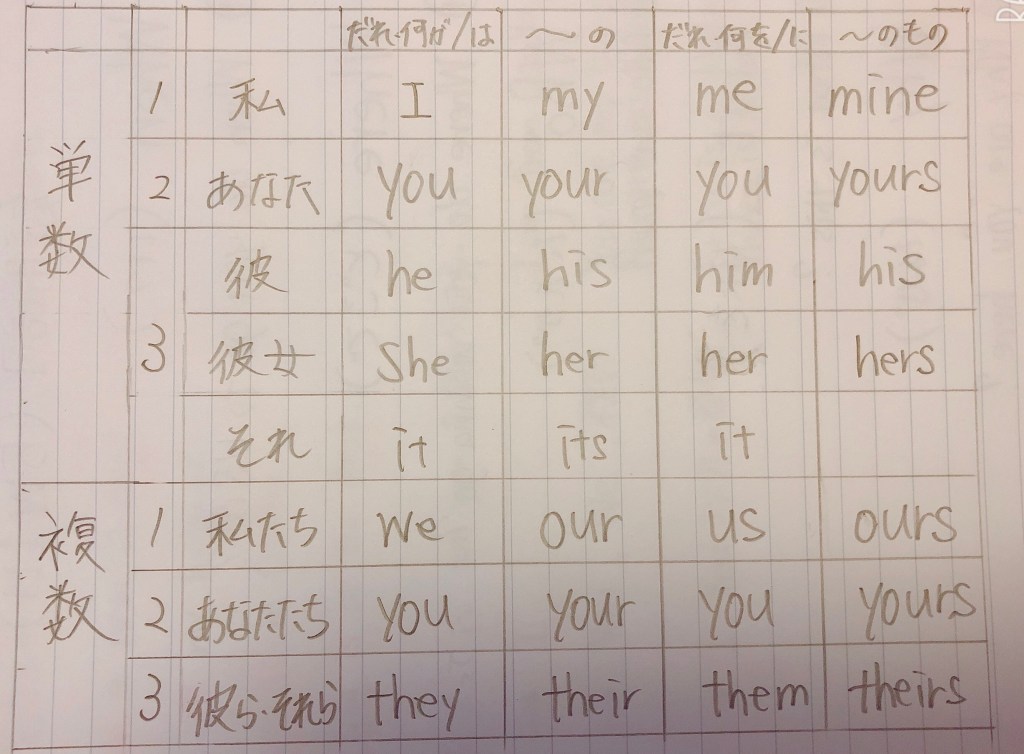 だれ何が/は ～の だれ何を/に ～のもの
単数 1 私 I my me mine
2 あなた you your you yours
3 彼 he his him his
彼女 she her her hers
それ it its it
複数 1 私たち we our us ours
2 あなたたち you your you yours
3 彼ら・それら they their them theirs